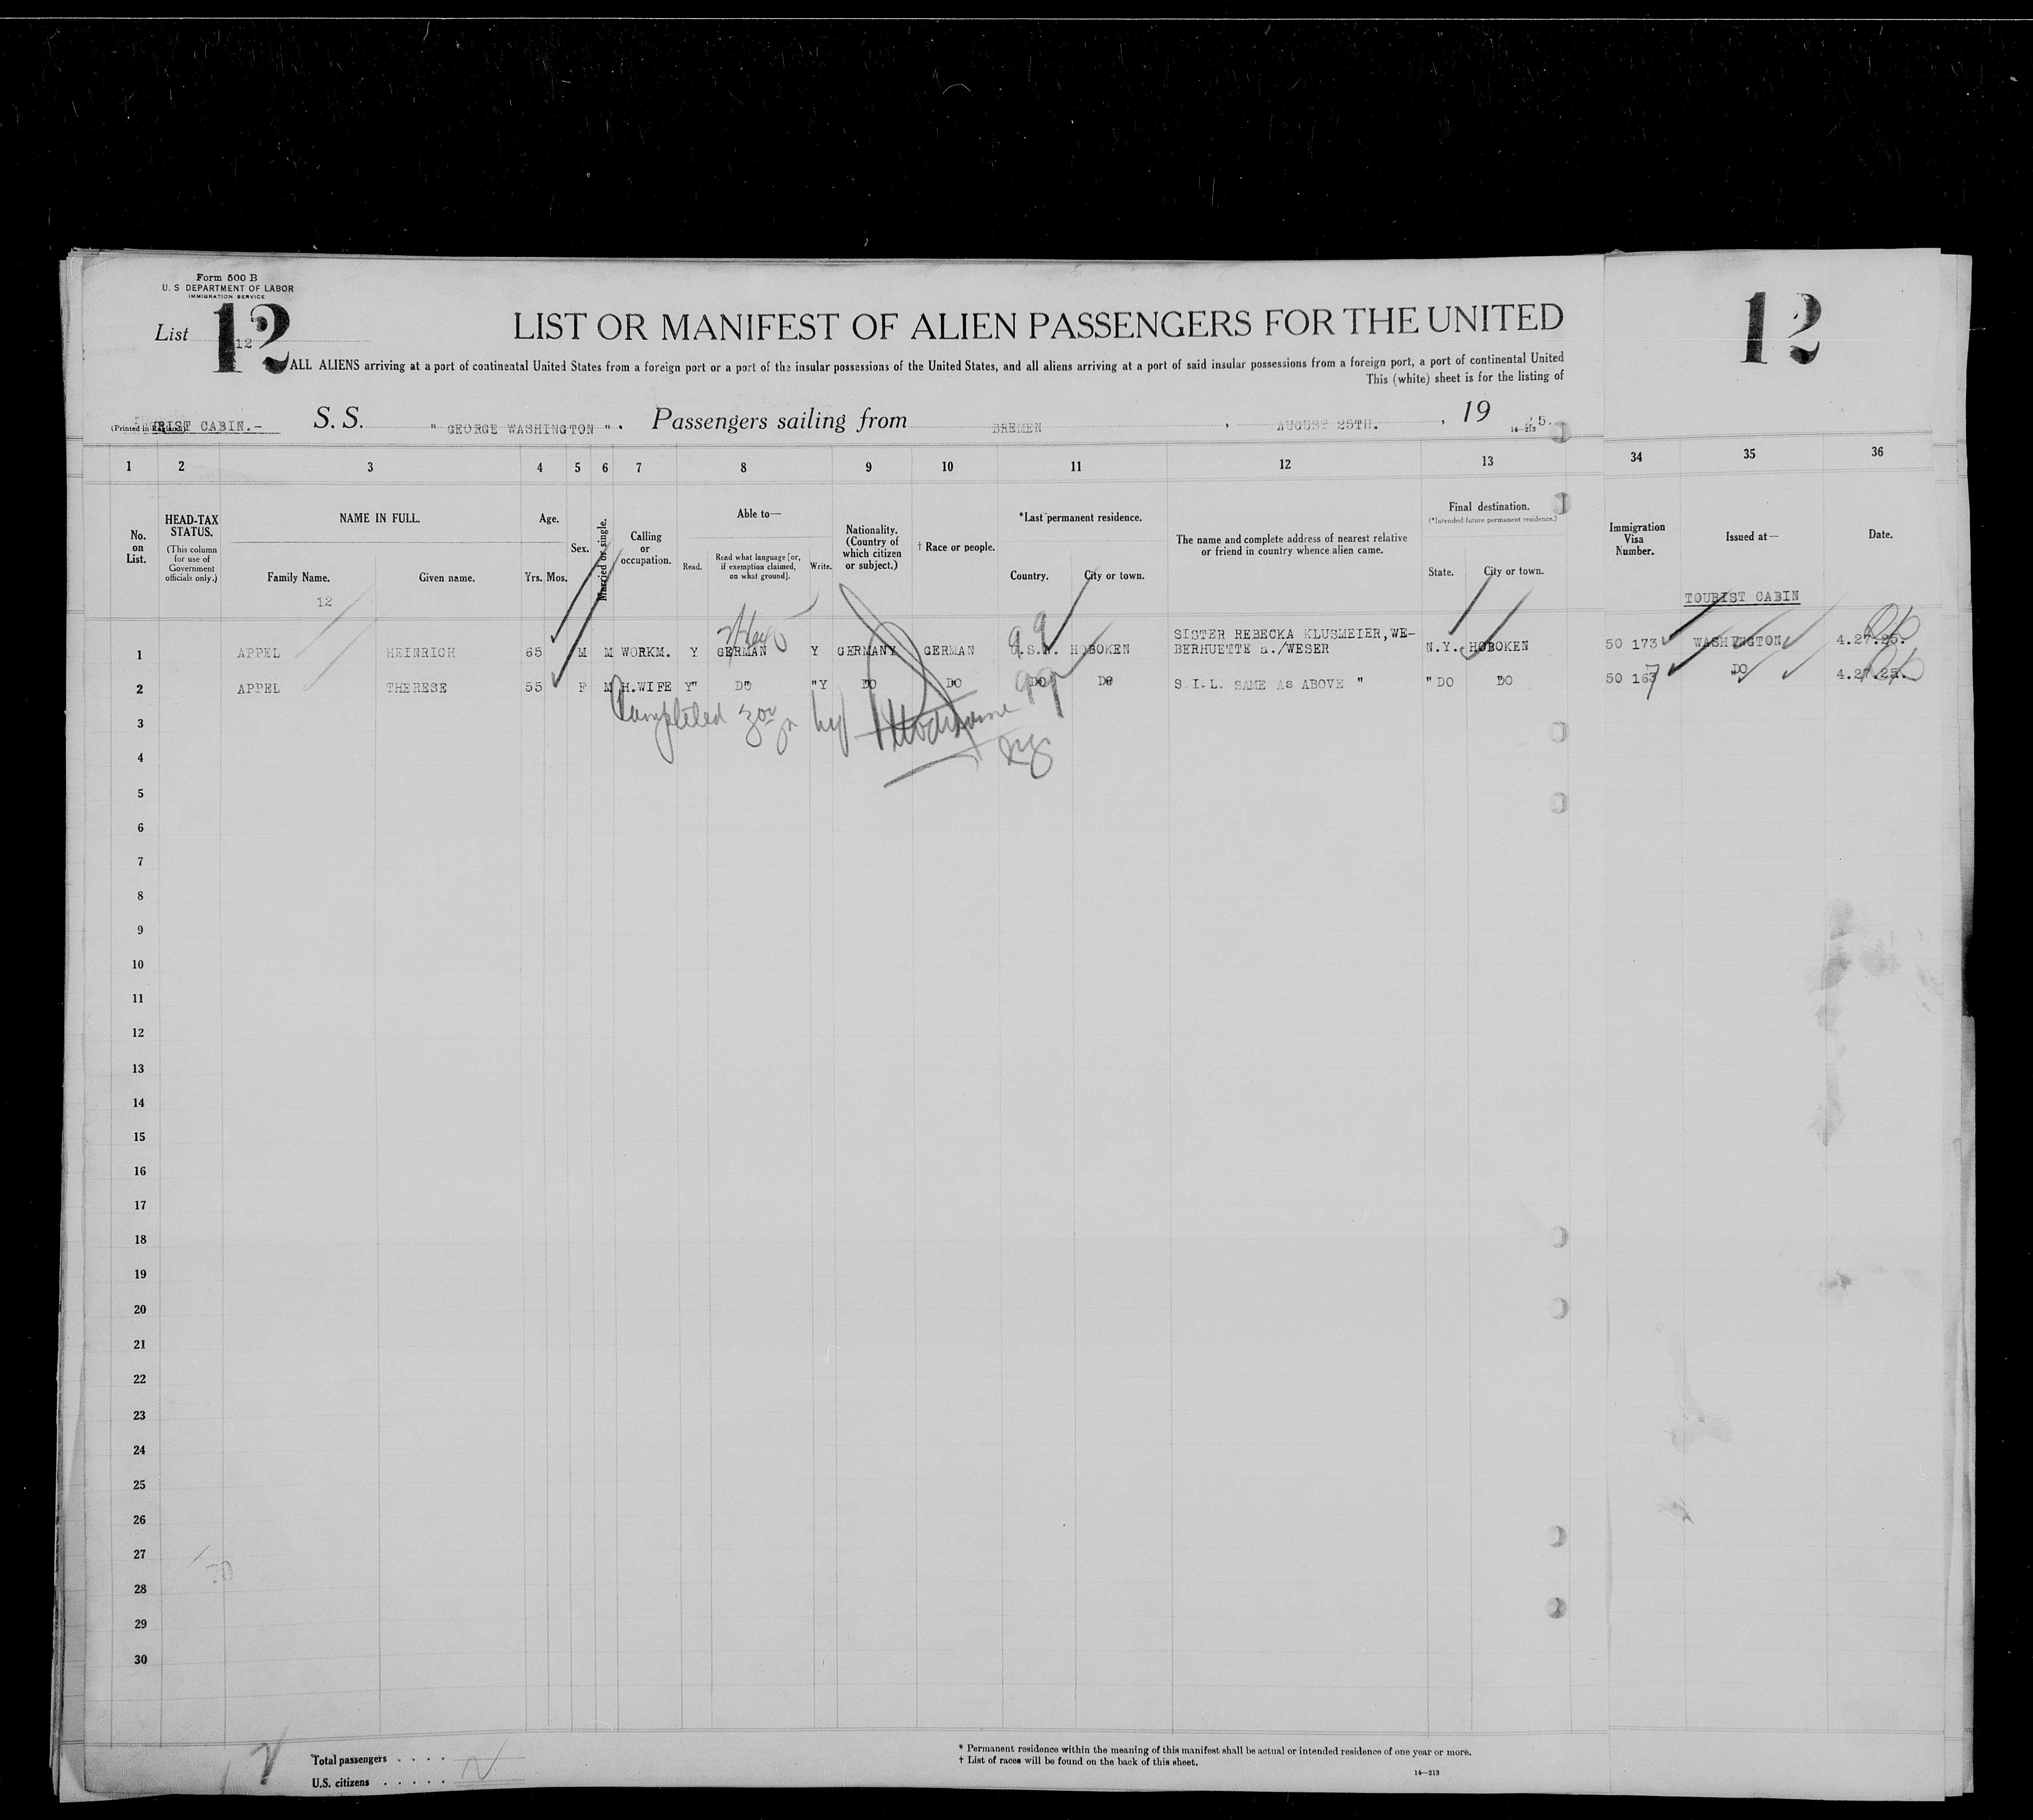 Form 500 B
U. S DEPARTMENT OF LABOR
IMMIGRATION SERVICE
List 12
12
LIST OR MANIFEST OF ALIEN PASSENGERS FOR THE UNITED
12
ALL ALIENS arriving at a port of continental United States from a foreign port or a port of the insular possessions of the United States, and all aliens arriving at a port of said insular possessions from a foreign port, a port of continental United
This (white) sheet is for the listing of
(Printed in England) TOURIST CABIN.- S. S. " GEORGE WASHINGTON ". Passengers sailing from BREMEN , AUGUST 25TH. , 19 25.
14—213
1 2 3 4 5 6 7 8 9 10 11 12 13 34 35 36
No. on List.
HEAD-TAX STATUS.
(This column for use of Government officials only.)
NAME IN FULL.
Family Name. Given name.
12
Age.
Yrs. Mos.
Sex.
Married or single.
Calling or occupation.
Able to—
Read. Read what language [or, if exemption claimed, on what ground]. Write.
Nationality. (Country of which citizen or subject.)
† Race or people.
*Last permanent residence.
Country. City or town.
The name and complete address of nearest relative or friend in country whence alien came.
Final destination.
(*Intended future permanent residence.)
State. City or town.
Immigration Visa Number.
Issued at—
Date.
TOURIST CABIN
1 APPEL HEINRICH 65 M M WORKM. Y GERMAN Y GERMANY GERMAN U.S.A. HOBOKEN SISTER REBECKA KLUSMEIER,WE-
BERHUETTE a./WESER N.Y. HOBOKEN 50 173 WASHINGTON 4.27.25.
2 APPEL THERESE 55 F M H.WIFE Y" DO "Y DO DO DO DO S.I.L. SAME AS ABOVE " " DO DO 50 167 DO 4.27.25.
Completed by
3
4
5
6
7
8
9
10
11
12
13
14
15
16
17
18
19
20
21
22
23
24
25
26
27
28
29
30
Total passengers . . . .
U.S. citizens . . . . .
* Permanent residence within the meaning of this manifest shall be actual or intended residence of one year or more.
† List of races will be found on the back of this sheet.
14—213